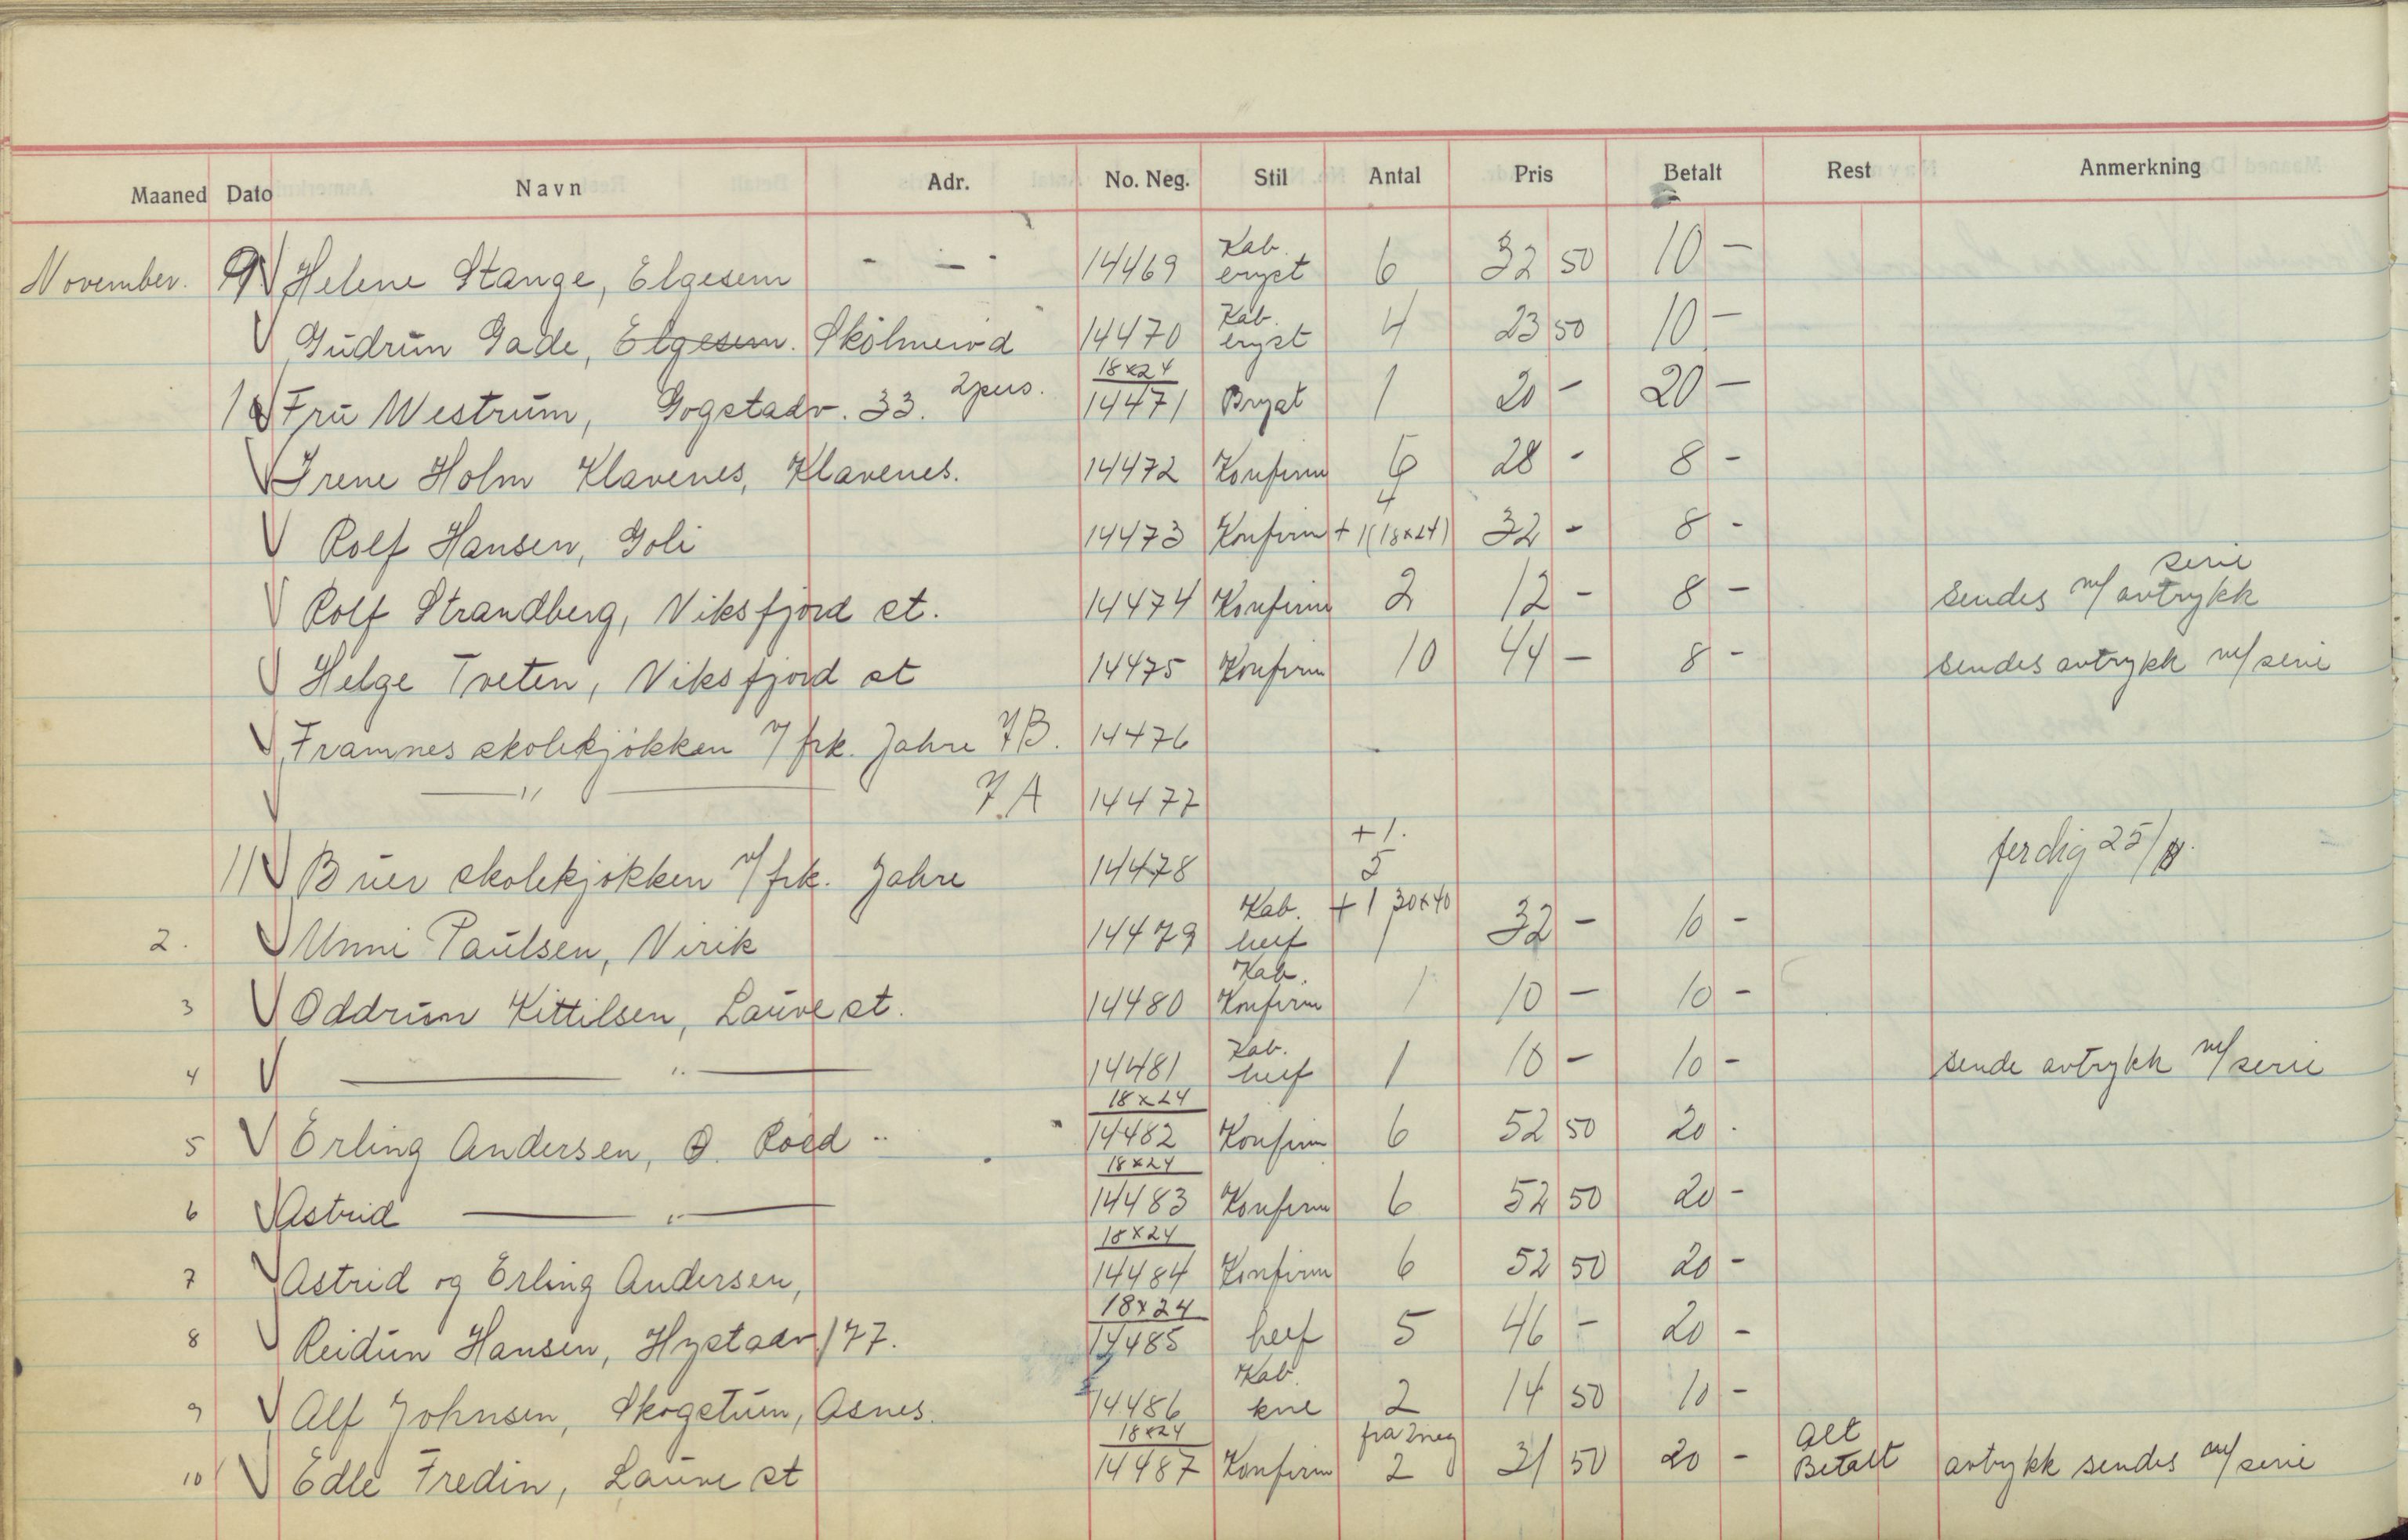 Maaned Dato Navn Adr. No. Neg. Stil Antal Pris Betalt Rest Anmerkning
November. 9 Helene Stange, Elgesem - - - 14469 Kab. bryst 6 32 50 10 -
Gudrun Gade, Elgesem. Skolmerød 14470 Kab. bryst 4 23 50 10 -
10 Fru Westrum, Gogstadv. 33. 2 pers. 18x24 14471 Bryst 1 20 - 20 -
Irene Holm Klavenes, Klavenes. 14472 Konfirm 6 28 - 8 -
Rolf Hansen, Goli 14473 Konfirm 4 + 1 (18x24) 32 - 8 -
Rolf Strandberg, Viksfjord st. 14474 Konfirm 2 12 - 8 - sendes m/ avtrykk serie
Helge Tveten, Viksfjord st 14475 Konfirm 10 44 - 8 - sendes avtrykk m/ serie
Framnes skolekjøkken v/ frk. Jahre 7B. 14476
—— " —— 7.A 14477
11 Buer skolekjøkken v/ frk. Jahre 14478 +1. 5 ferdig 25/11.
2. Unni Paulsen, Virik 14479 Kab. helf + 1 30x40 1 32 - 10 -
3 Oddrun Kittilsen, Lauve st. 14480 Kab. Konfirm 1 10 - 10 -
4 —— " —— 14481 Kab. helf 1 10 - 10 - sende avtrykk m/ serie
5 Erling Andersen, Ø. Roed 18x24 14482 Konfirm 6 52 50 20 -
6 Astrid —— " —— 18x24 14483 Konfirm 6 52 50 20 -
7 Astrid og Erling Andersen, 18x24 14484 Konfirm 6 52 50 20 -
8 Reidun Hansen, Hystadv 177. 18x24 14485 helf 5 46 - 20 -
9 Alf Johnsen, Skogstuen, Asnes. 14486 Kab. kne 2 14 50 10 -
10 Edle Fredin, Lauve st 18x24 14487 Konfirm fra 2 neg 2 31 50 20 - Alt Betalt avtrykk sendes m/ serie